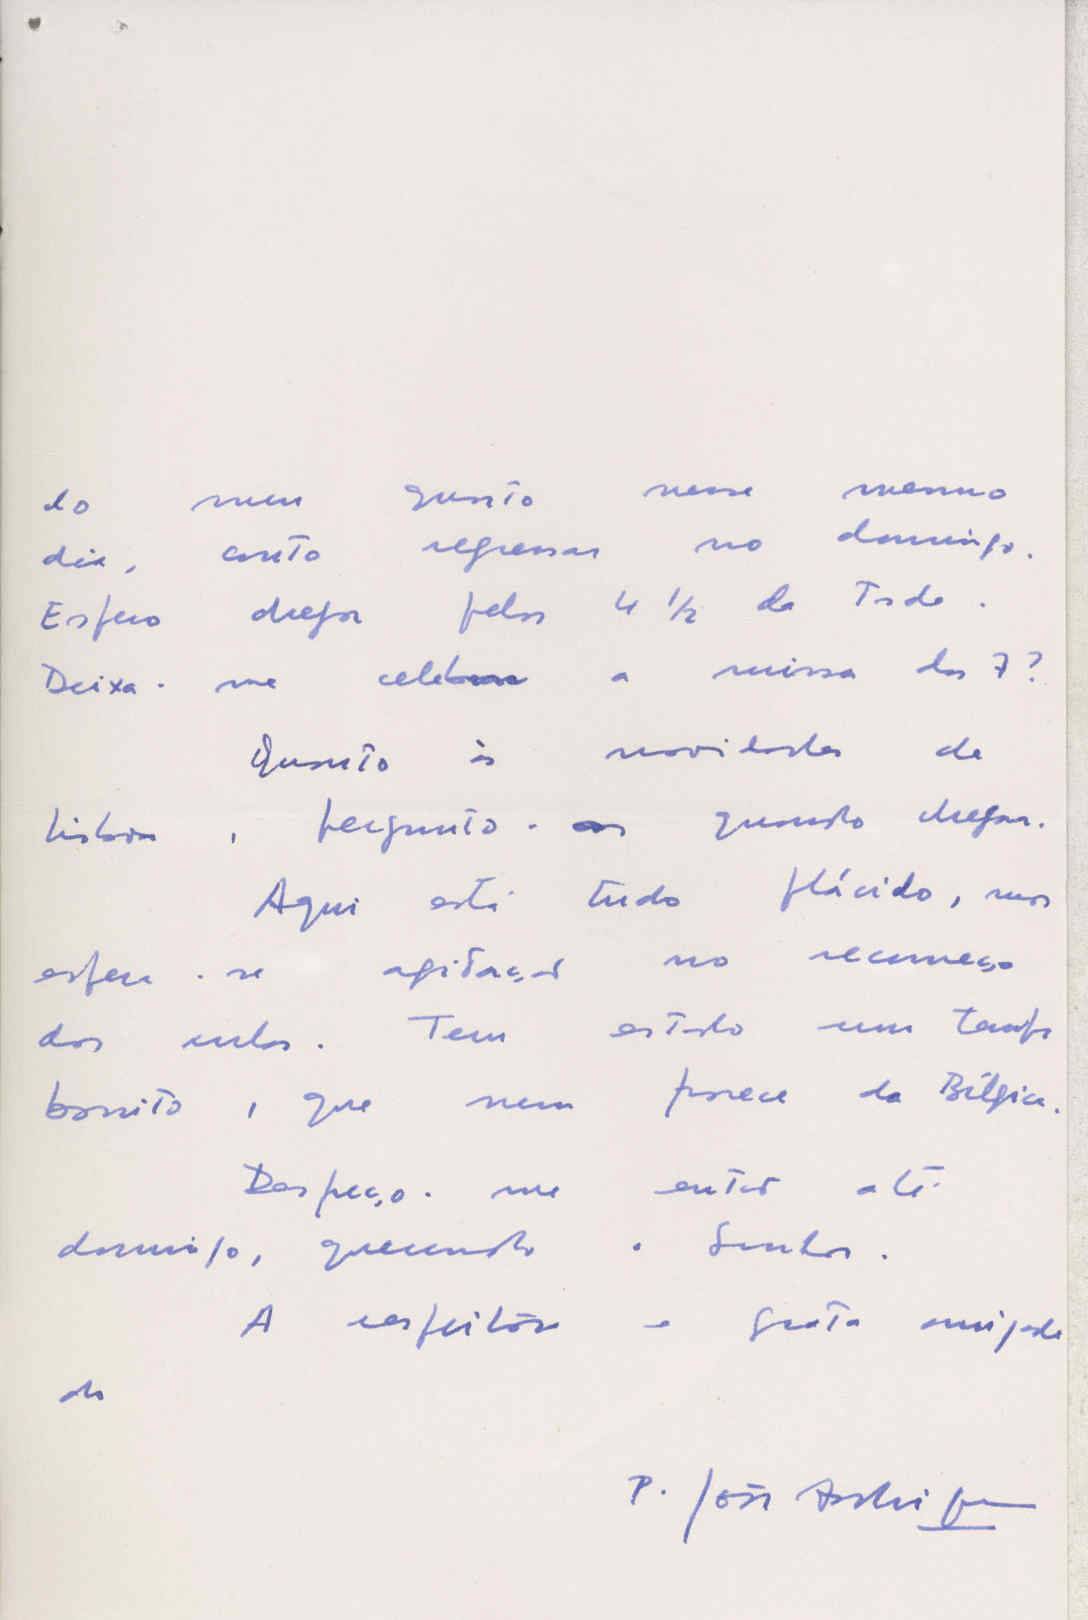 do meu quarto nesse mesmo
dia, conto regressar no domingo.
Espero chegar pelas 4 1/2 da Tarde.
Deixa-me celebrar a missa das 7?
Quanto às novidades de
Lisboa, pergunto-as quando chegar.
Aqui está tudo plácido, mas
espera-se agitação no recomeço
dos aulas. Tem estado um tempo
bonito, que nem parece da Bélgica.
Despeço-me então até
domingo, querendo o Senhor.
A respeitosa e grata amizade
do
P. José